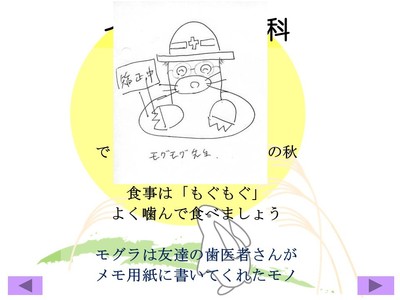 科
矯正中
モグモグ先生.
で
の秋
食事は「もぐもぐ」
よく噛んで食べましょう
モグラは友達の歯医者さんが
メモ用紙に書いてくれたモノ